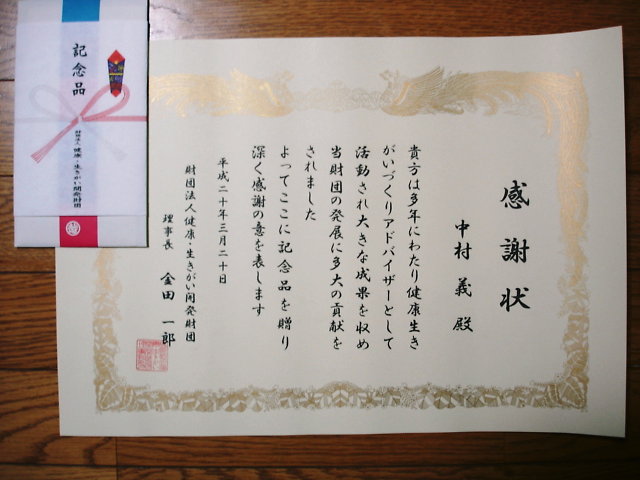 感謝状
中村 義 殿
貴方は多年にわたり健康生き
がいづくりアドバイザーとして
活動され大きな成果を収め
当財団の発展に多大の貢献を
されました
よってここに記念品を贈り
深く感謝の意を表します
平成二十年三月二十日
財団法人健康・生きがい開発財団
理事長 金田 一郎
記念品
財団法人 健康・生きがい開発財団